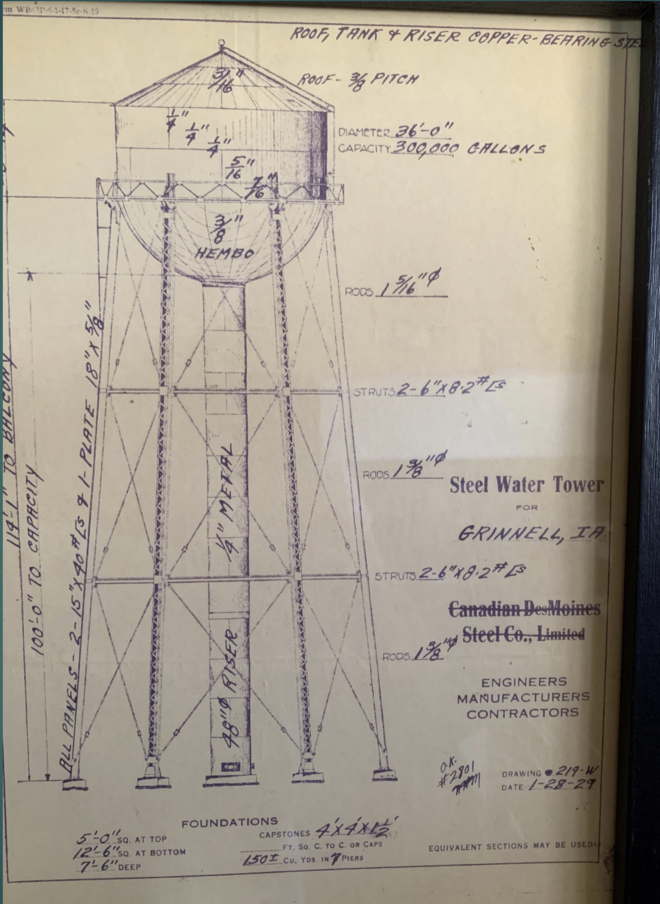 ROOF, TANK & RISER COPPER-BEARING STE
3/16"
ROOF - 3/8 PITCH
1/4"
1/4"
1/4"
5/16"
7/16"
DIAMETER 36'-0"
CAPACITY 300,000 GALLONS
3/8"
HEMBO
RODS 1 5/16"φ
STRUTS 2-6"X8.2# [s
RODS 1 3/8"φ
Steel Water Tower
FOR
GRINNELL, IA
STRUTS 2-6"X8.2# [s
Canadian DesMoines
Steel Co., Limited
RODS 1 3/8"φ
ENGINEERS
MANUFACTURERS
CONTRACTORS
114'-1" TO BALCONY
100'-0" TO CAPACITY
ALL PANELS - 2-15"X40# [s & 1-PLATE 18"X5/8"
1/4" METAL
48"φ RISER
O.K.
#2801
DRAWING 219-W
DATE 1-28-29
FOUNDATIONS
5'-0" SQ. AT TOP
12'-6" SQ. AT BOTTOM
7'-6" DEEP
CAPSTONES 4'X4'X1 1/2'
FT. SQ. C. TO C. OR CAPS
150± CU. YDS. IN 7 PIERS
EQUIVALENT SECTIONS MAY BE USED